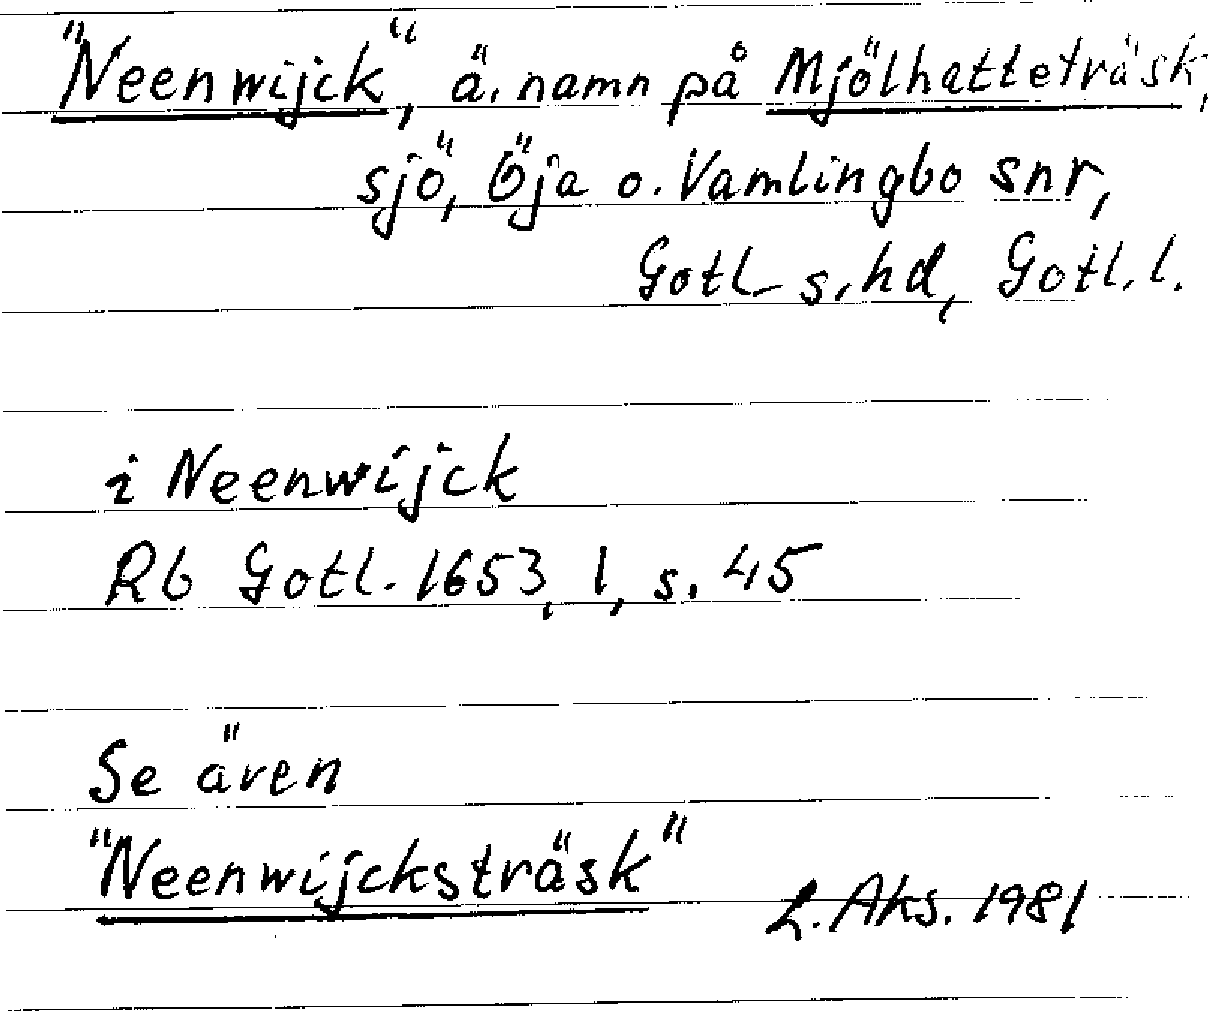 "Neenwijck", ä. namn på Mjölhatteträsk,
sjö, Öja o. Vamlingbo snr,
Gotl. s. hd, Gotl. l.
i Neenwijck
Rb Gotl. 1653, 1, s. 45
Se även
"Neenwijcksträsk"
L. Aks. 1981